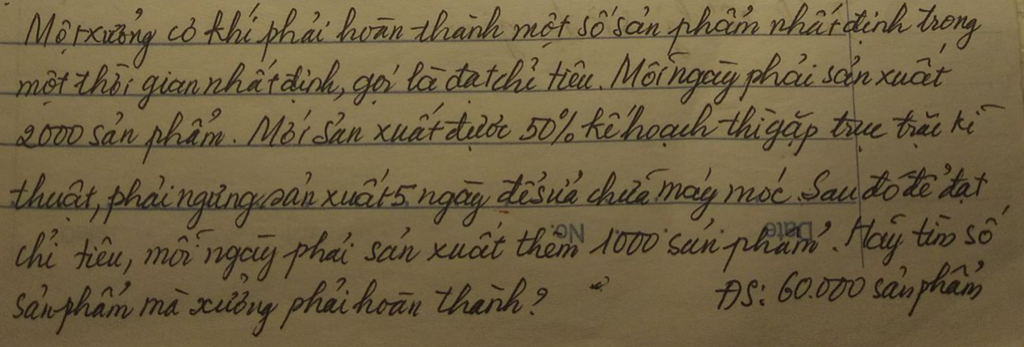 Một xưởng cơ khí phải hoàn thành một số sản phẩm nhất định trong
một thời gian nhất định, gọi là đạt chỉ tiêu. Mỗi ngày phải sản xuất
2000 sản phẩm. Mới sản xuất được 50% kế hoạch thì gặp trục trặc kĩ
thuật, phải ngưng sản xuất 5 ngày để sửa chữa máy móc. Sau đó để đạt
chỉ tiêu, mỗi ngày phải sản xuất thêm 1000 sản phẩm. Hãy tìm số
sản phẩm mà xưởng phải hoàn thành?
ĐS: 60.000 sản phẩm
No:
Date